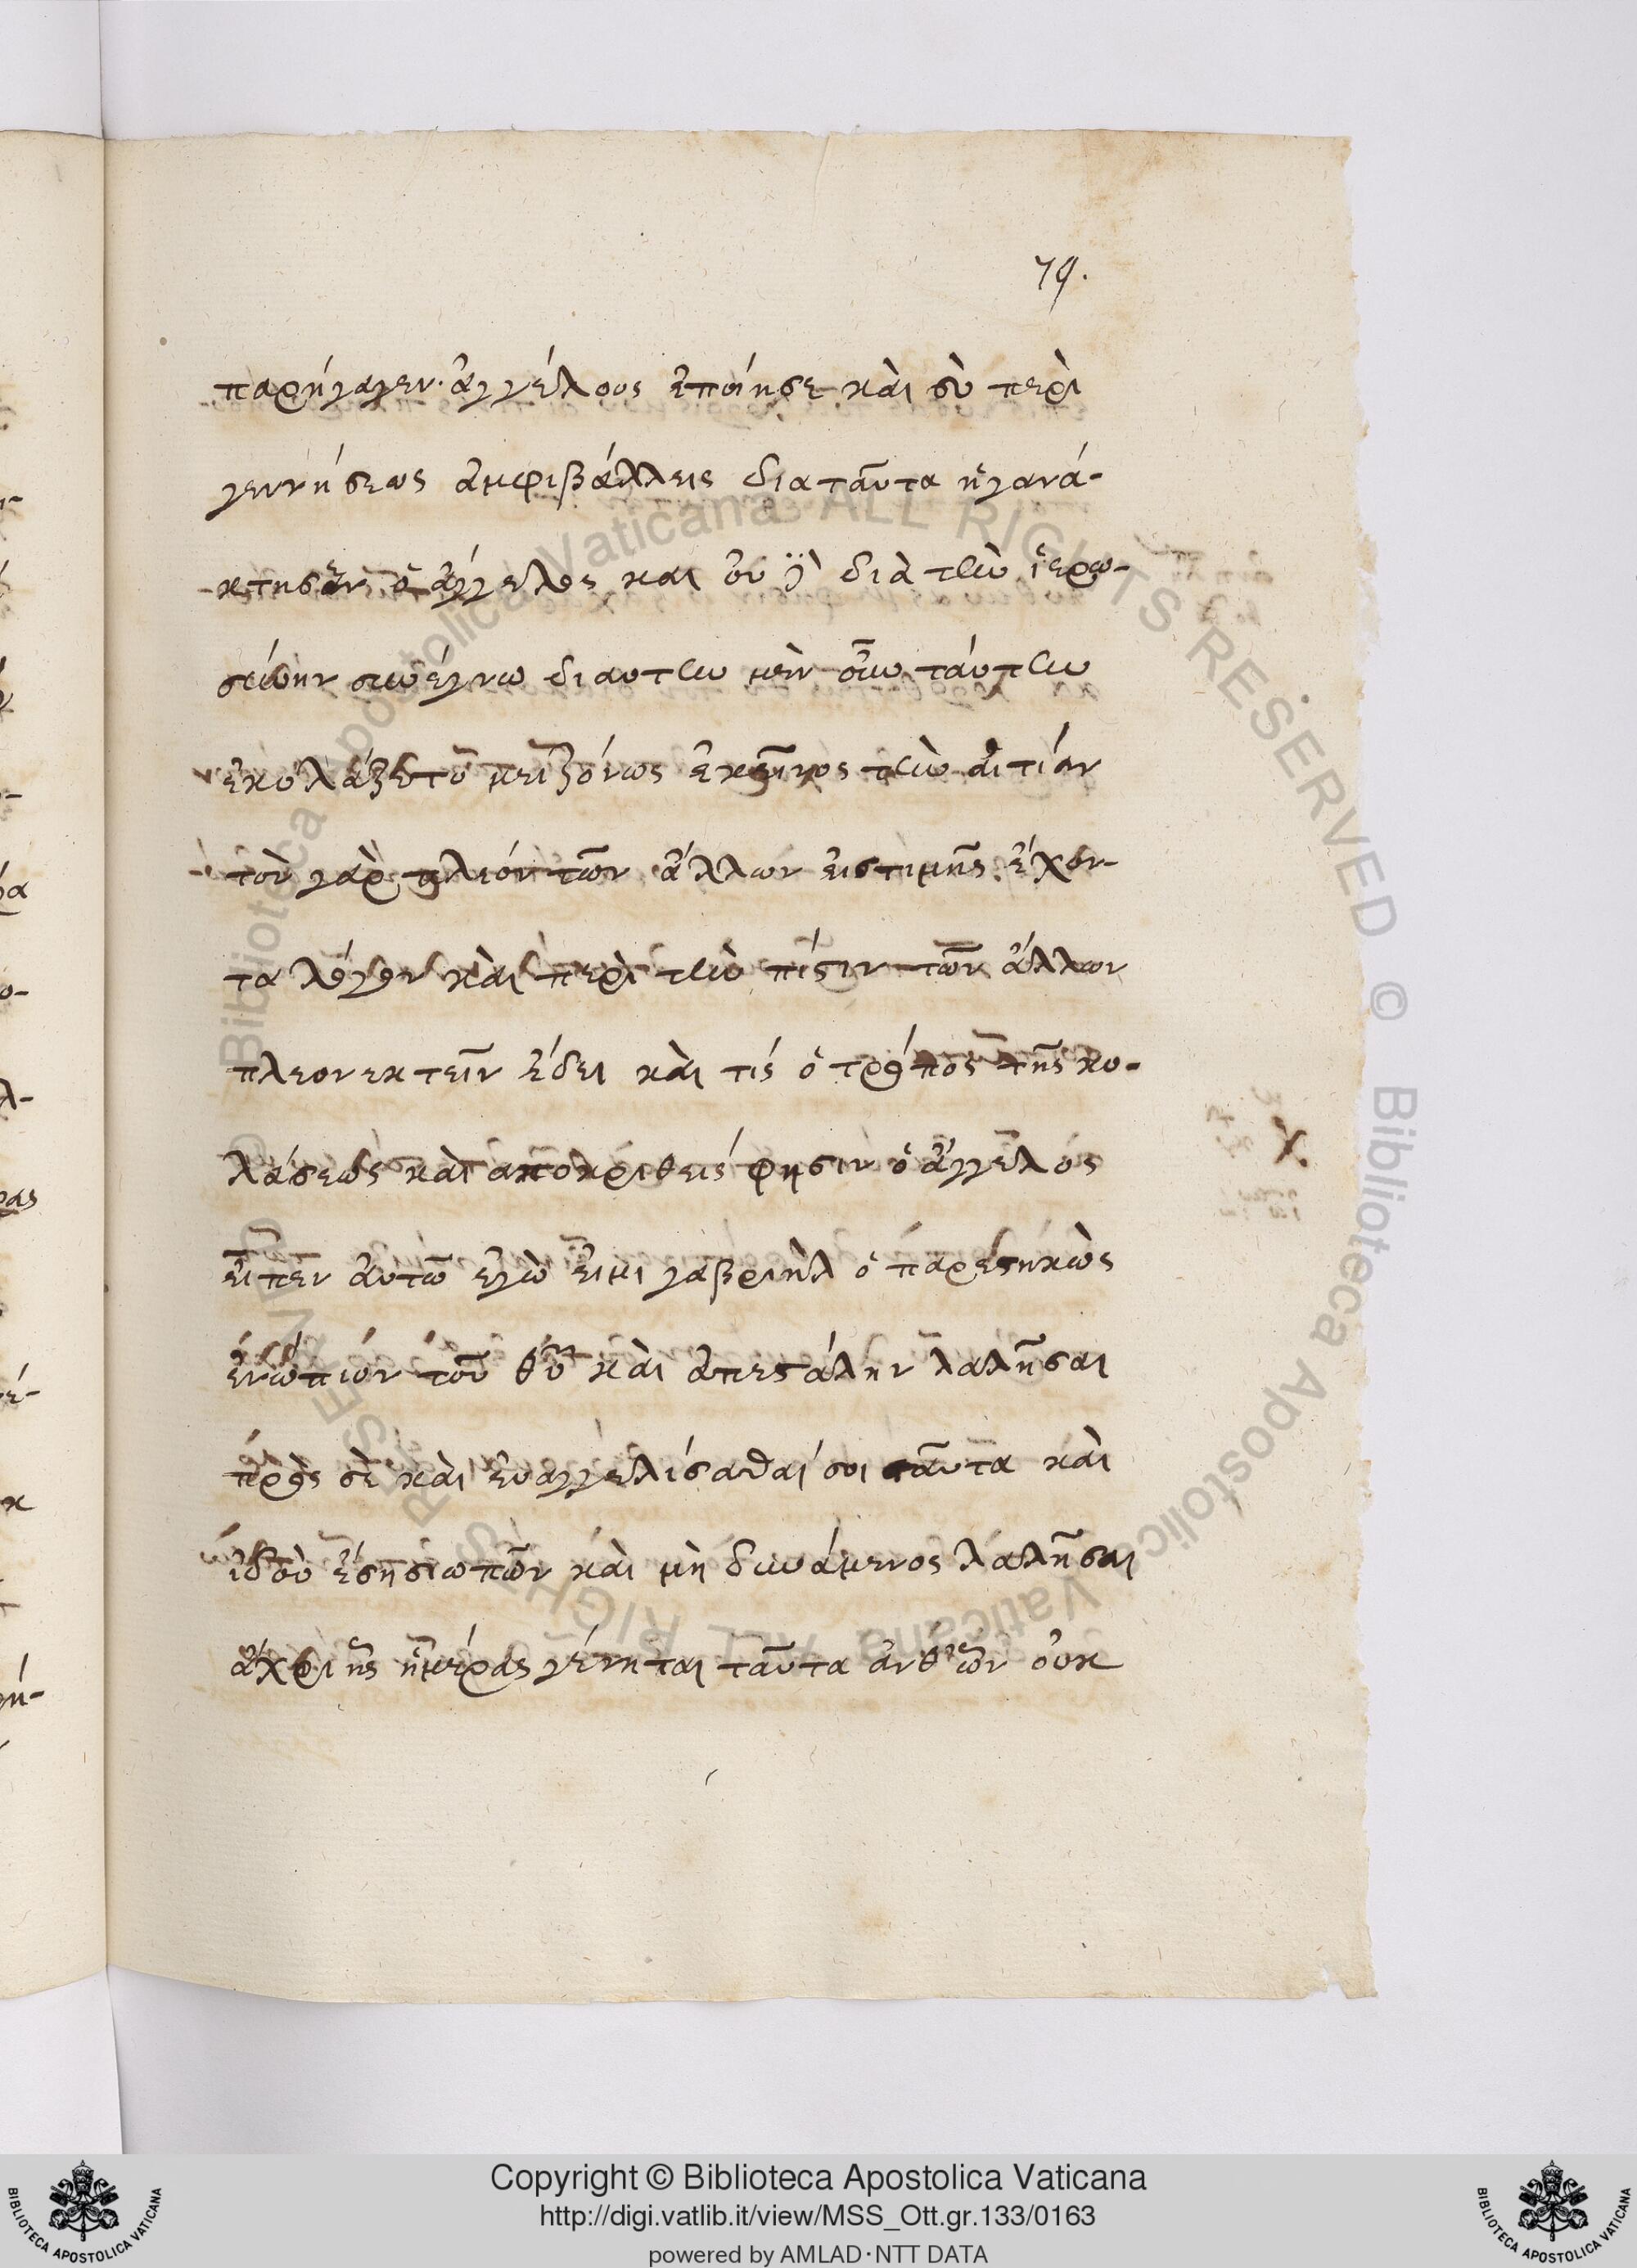 79.
παρήγαγεν· ἀγγέλους ἐποίησε καὶ σὺ περὶ
γεννήσεως ἀμφιβάλλεις διαταῦτα ἠγανά-
κτησεν ὁ ἄγγελος και οὐ δὲ διὰ τὴν ἱερω-
σύνην συνέγνω διαυτην μὲν οὖν ταύτην
ἐκολάζετο μειζόνως ἐκεῖνος τὴν αἰτίαν
τὸν γὰρ πλιόν τῶν ἄλλων εἰστιμῆς ἔχον-
τα λόγον καὶ περὶ τὴν πίστιν τῶν ἄλλων
πλεονεκτεῖν ἔδει καὶ τίς ὁ τρόπος τῆς κο-
λάσεως καὶ αποκριθείς φησιν ὁ ἄγγελος
εἶπεν ἀυτῶ ἐγὼ εἰμι γαβριὴλ ὁ παρεστηκὼς
ἐνώπιον τοῦ θῦ καὶ ἀπεστάλην λαλῆσαι
πρὸς σὲ καὶ ἐυαγγελίσασθαί σοι ταῦτα καὶ
ἰδοὺ ἔση σιωπῶν καὶ μὴ δυνάμενος λαλῆσαι
ἄχρι ἧς ἡμέρας γένηται ταῦτα ἀνθ ὧν οὐκ
χ.
Copyright © Biblioteca Apostolica Vaticana
http://digi.vatlib.it/view/MSS_Ott.gr.133/0163
powered by AMLAD·NTT DATA
BIBLIOTECA APOSTOLICA VATICANA
BIBLIOTECA APOSTOLICA VATICANA
© Biblioteca Apostolica Vaticana ALL RIGHTS RESERVED © Biblioteca Apostolica Vaticana ALL RIGHTS RESERVED